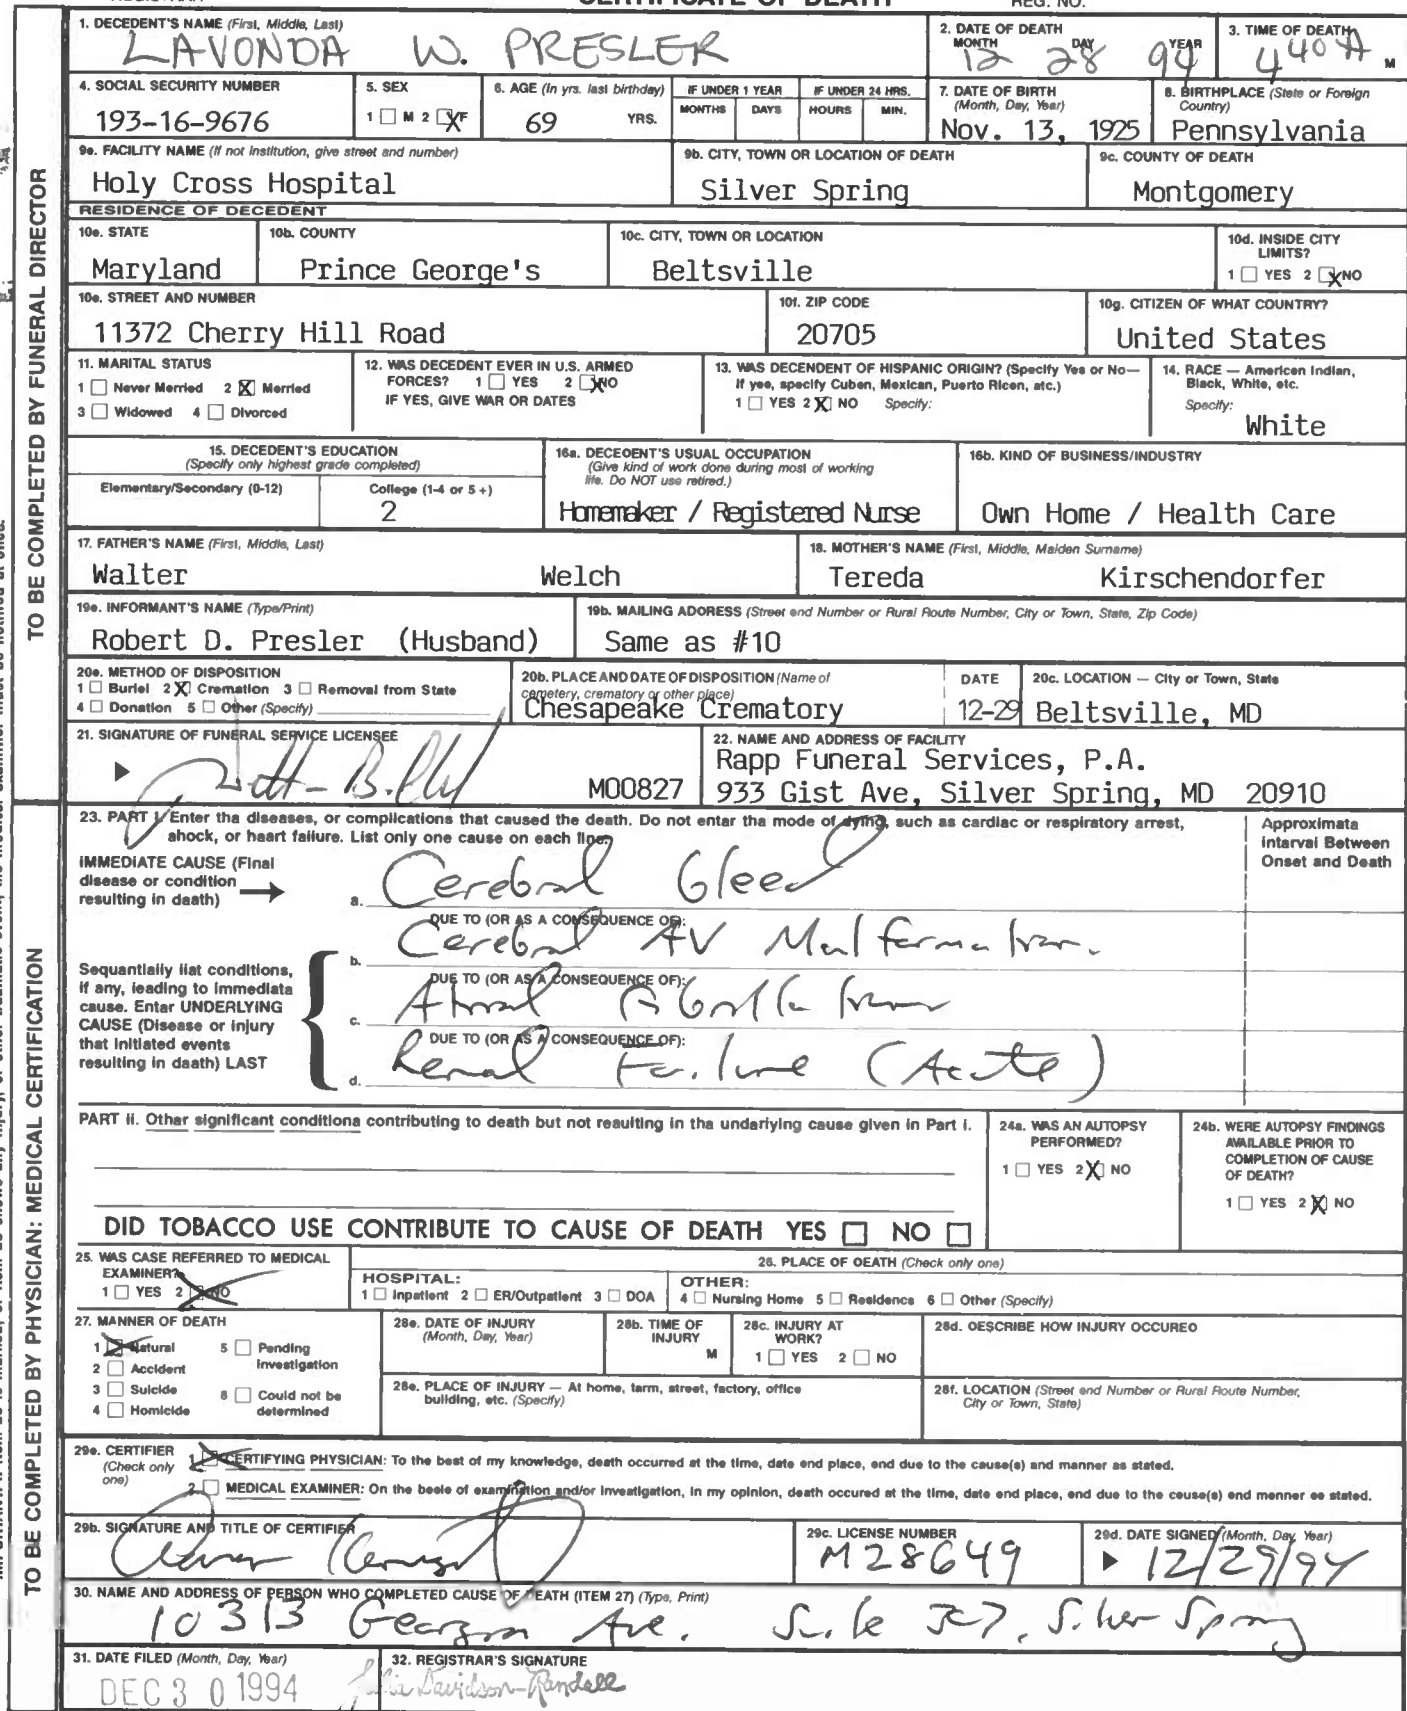 CERTIFICATE OF DEATH REG. NO.
1. DECEDENT'S NAME (First, Middle, Last)
LAVONDA W. PRESLER
2. DATE OF DEATH
MONTH DAY YEAR
12 28 94
3. TIME OF DEATH
440 A M
4. SOCIAL SECURITY NUMBER
193-16-9676
5. SEX
1 ☐ M 2 ☒ F
6. AGE (In yrs. last birthday)
69 YRS.
IF UNDER 1 YEAR
MONTHS DAYS
IF UNDER 24 HRS.
HOURS MIN.
7. DATE OF BIRTH
(Month, Day, Year)
Nov. 13, 1925
8. BIRTHPLACE (State or Foreign
Country)
Pennsylvania
9a. FACILITY NAME (If not institution, give street and number)
Holy Cross Hospital
9b. CITY, TOWN OR LOCATION OF DEATH
Silver Spring
9c. COUNTY OF DEATH
Montgomery
RESIDENCE OF DECEDENT
10a. STATE
Maryland
10b. COUNTY
Prince George's
10c. CITY, TOWN OR LOCATION
Beltsville
10d. INSIDE CITY
LIMITS?
1 ☐ YES 2 ☒ NO
10e. STREET AND NUMBER
11372 Cherry Hill Road
10f. ZIP CODE
20705
10g. CITIZEN OF WHAT COUNTRY?
United States
11. MARITAL STATUS
1 ☐ Never Married 2 ☒ Married
3 ☐ Widowed 4 ☐ Divorced
12. WAS DECEDENT EVER IN U.S. ARMED
FORCES? 1 ☐ YES 2 ☒ NO
IF YES, GIVE WAR OR DATES
13. WAS DECENDENT OF HISPANIC ORIGIN? (Specify Yes or No—
If yes, specify Cuban, Mexican, Puerto Rican, etc.)
1 ☐ YES 2 ☒ NO Specify:
14. RACE — American Indian,
Black, White, etc.
Specify:
White
15. DECEDENT'S EDUCATION
(Specify only highest grade completed)
Elementary/Secondary (0-12)
College (1-4 or 5+)
2
16a. DECEDENT'S USUAL OCCUPATION
(Give kind of work done during most of working
life. Do NOT use retired.)
Homemaker / Registered Nurse
16b. KIND OF BUSINESS/INDUSTRY
Own Home / Health Care
17. FATHER'S NAME (First, Middle, Last)
Walter Welch
18. MOTHER'S NAME (First, Middle, Maiden Surname)
Tereda Kirschendorfer
19a. INFORMANT'S NAME (Type/Print)
Robert D. Presler (Husband)
19b. MAILING ADDRESS (Street and Number or Rural Route Number, City or Town, State, Zip Code)
Same as #10
20a. METHOD OF DISPOSITION
1 ☐ Burial 2 ☒ Cremation 3 ☐ Removal from State
4 ☐ Donation 5 ☐ Other (Specify)
20b. PLACE AND DATE OF DISPOSITION (Name of
cemetery, crematory or other place)
Chesapeake Crematory
DATE
12-29
20c. LOCATION — City or Town, State
Beltsville, MD
21. SIGNATURE OF FUNERAL SERVICE LICENSEE
M00827
22. NAME AND ADDRESS OF FACILITY
Rapp Funeral Services, P.A.
933 Gist Ave, Silver Spring, MD 20910
TO BE COMPLETED BY FUNERAL DIRECTOR
23. PART I. Enter the diseases, or complications that caused the death. Do not enter the mode of dying, such as cardiac or respiratory arrest,
shock, or heart failure. List only one cause on each line.
Approximate
Interval Between
Onset and Death
IMMEDIATE CAUSE (Final
disease or condition
resulting in death)
a. Cerebral Bleed
DUE TO (OR AS A CONSEQUENCE OF):
b. Cerebral AV Malformation.
Sequentially list conditions,
if any, leading to immediate
cause. Enter UNDERLYING
CAUSE (Disease or injury
that initiated events
resulting in death) LAST
DUE TO (OR AS A CONSEQUENCE OF):
c. Atrial Fibrillation
DUE TO (OR AS A CONSEQUENCE OF):
d. Renal Failure (Acute)
PART II. Other significant conditions contributing to death but not resulting in the underlying cause given in Part I.
24a. WAS AN AUTOPSY
PERFORMED?
1 ☐ YES 2 ☒ NO
24b. WERE AUTOPSY FINDINGS
AVAILABLE PRIOR TO
COMPLETION OF CAUSE
OF DEATH?
1 ☐ YES 2 ☒ NO
DID TOBACCO USE CONTRIBUTE TO CAUSE OF DEATH YES ☐ NO ☐
25. WAS CASE REFERRED TO MEDICAL
EXAMINER?
1 ☐ YES 2 ☒ NO
26. PLACE OF DEATH (Check only one)
HOSPITAL:
1 ☐ Inpatient 2 ☐ ER/Outpatient 3 ☐ DOA
OTHER:
4 ☐ Nursing Home 5 ☐ Residence 6 ☐ Other (Specify)
27. MANNER OF DEATH
1 ☒ Natural 5 ☐ Pending
Investigation
2 ☐ Accident
3 ☐ Suicide 6 ☐ Could not be
determined
4 ☐ Homicide
28a. DATE OF INJURY
(Month, Day, Year)
28b. TIME OF
INJURY
M
28c. INJURY AT
WORK?
1 ☐ YES 2 ☐ NO
28d. DESCRIBE HOW INJURY OCCURED
28e. PLACE OF INJURY — At home, farm, street, factory, office
building, etc. (Specify)
28f. LOCATION (Street and Number or Rural Route Number,
City or Town, State)
29a. CERTIFIER
(Check only
one)
1 ☒ CERTIFYING PHYSICIAN: To the best of my knowledge, death occurred at the time, date and place, and due to the cause(s) and manner as stated.
2 ☐ MEDICAL EXAMINER: On the basis of examination and/or investigation, in my opinion, death occured at the time, date and place, and due to the cause(s) and manner as stated.
29b. SIGNATURE AND TITLE OF CERTIFIER
29c. LICENSE NUMBER
M28649
29d. DATE SIGNED (Month, Day, Year)
12/29/94
30. NAME AND ADDRESS OF PERSON WHO COMPLETED CAUSE OF DEATH (ITEM 27) (Type, Print)
10313 Georgia Ave. Suite 307, Silver Spring
31. DATE FILED (Month, Day, Year)
DEC 30 1994
32. REGISTRAR'S SIGNATURE
Julia Davidson-Randall
TO BE COMPLETED BY PHYSICIAN: MEDICAL CERTIFICATION